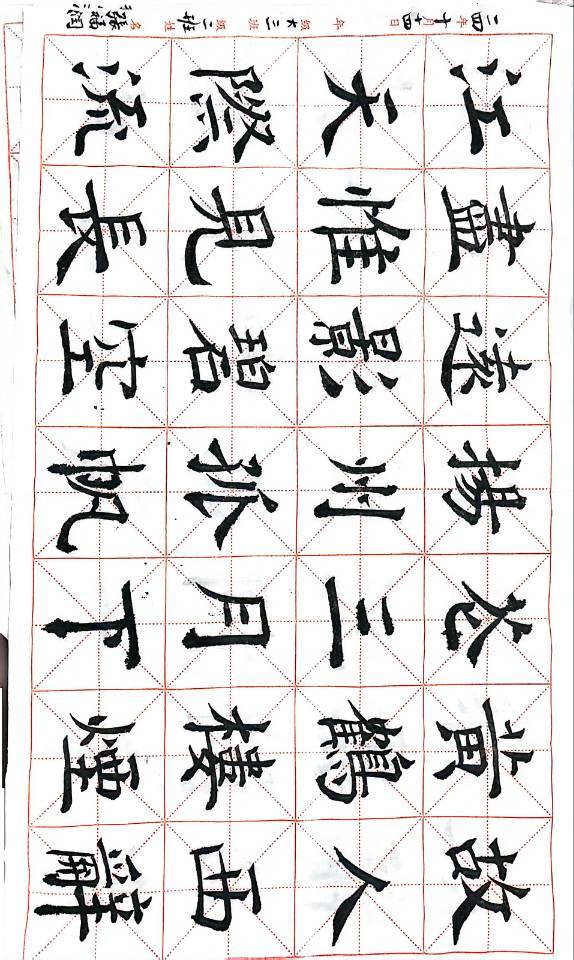 故人西辭
黃鶴樓煙
花三月下
揚州孤帆
遠影碧空
盡惟見長
江天際流
年十月十四日 年級 班 姓名 張福潤